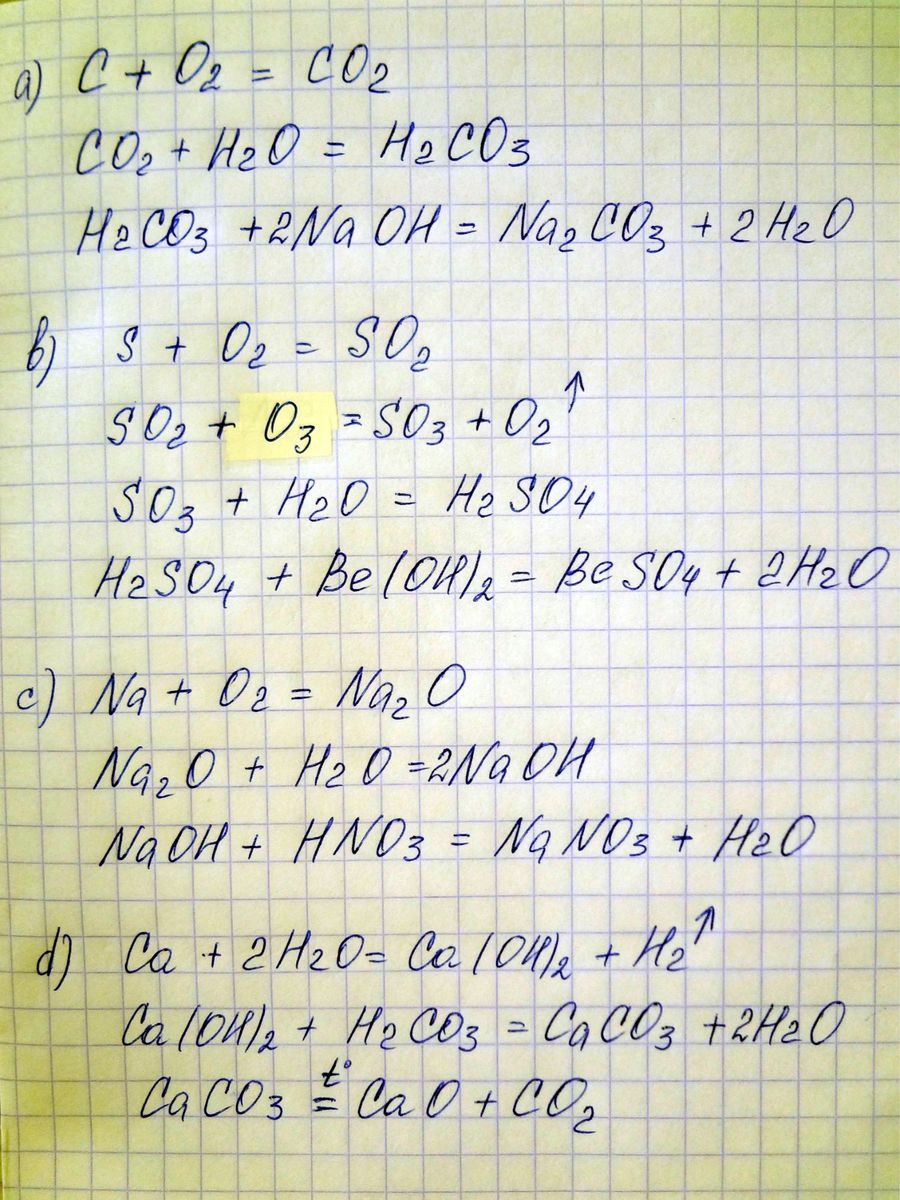 a) C + O₂ = CO₂
CO₂ + H₂O = H₂CO₃
H₂CO₃ + 2NaOH = Na₂CO₃ + 2H₂O
b) S + O₂ = SO₂
SO₂ + O₃ = SO₃ + O₂↑
SO₃ + H₂O = H₂SO₄
H₂SO₄ + Be(OH)₂ = BeSO₄ + 2H₂O
c) Na + O₂ = Na₂O
Na₂O + H₂O = 2NaOH
NaOH + HNO₃ = NaNO₃ + H₂O
d) Ca + 2H₂O = Ca(OH)₂ + H₂↑
Ca(OH)₂ + H₂CO₃ = CaCO₃ + 2H₂O
CaCO₃ =t° CaO + CO₂